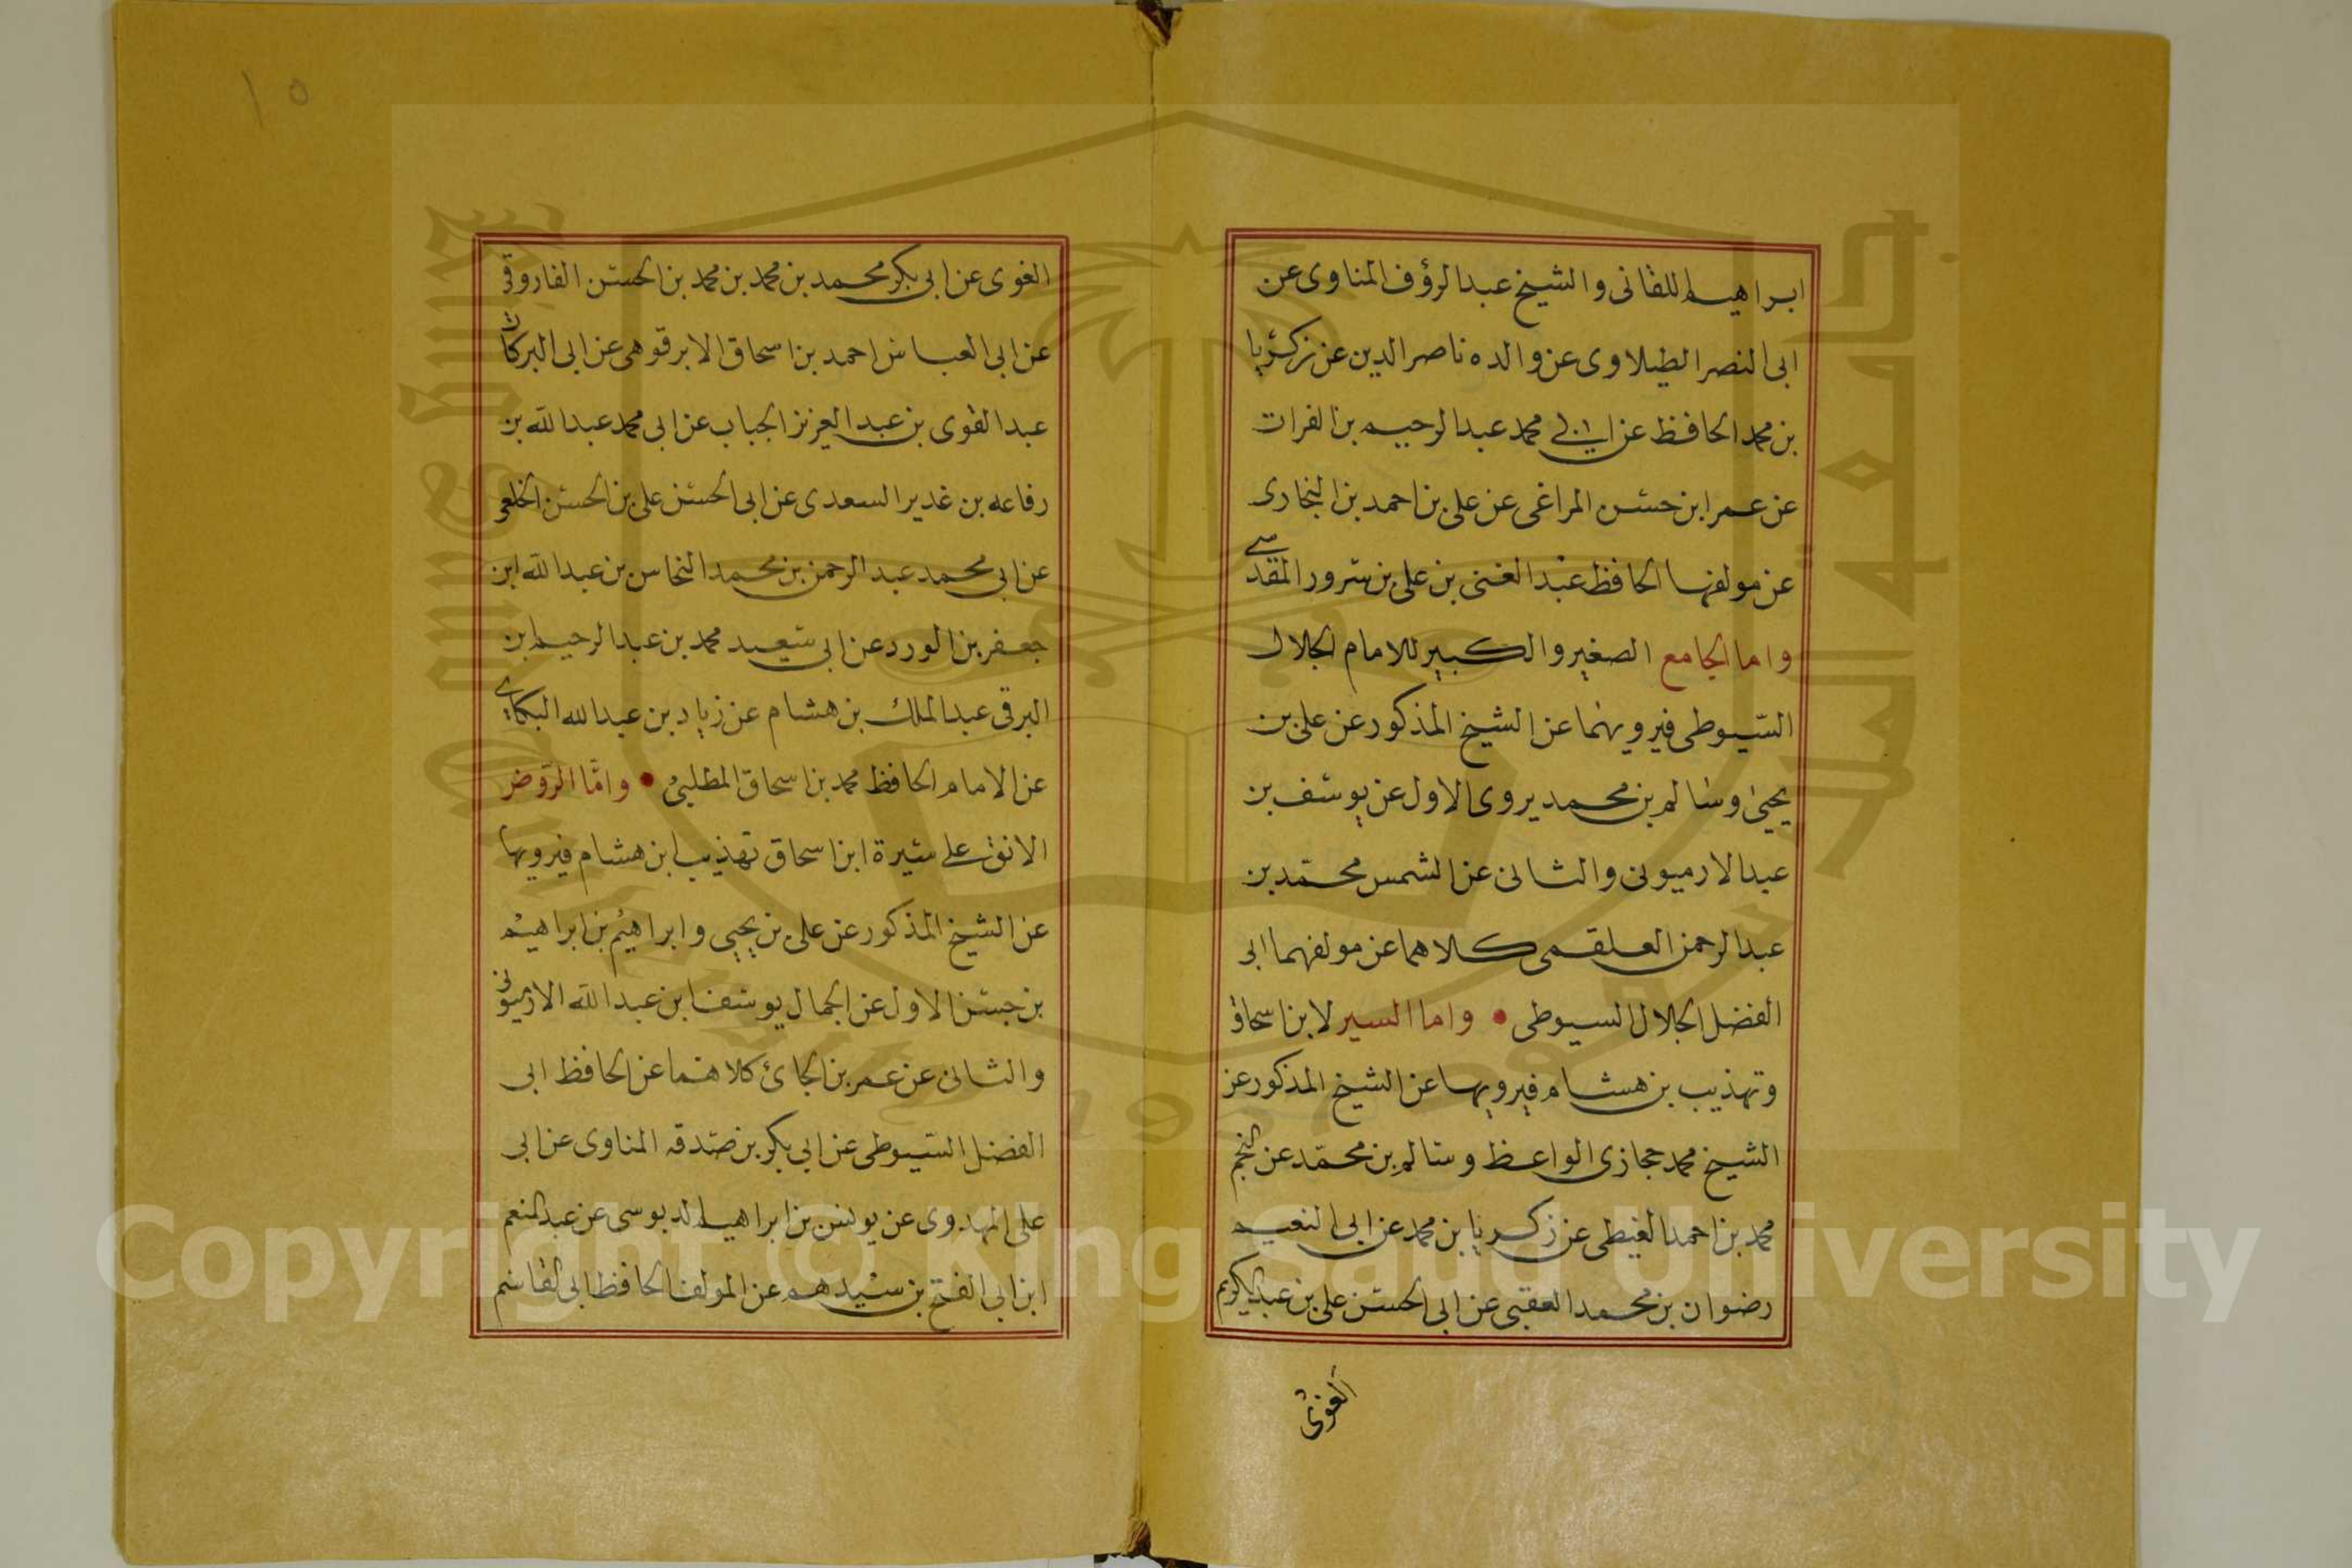 ابراهيم اللقانى والشيخ عبد الرؤف المناوى عن
ابى النصر الطبلاوى عن والده ناصر الدين عن زكريا
بن محمد الحافظ عن ابى محمد عبد الرحيم بن الفرات
عن عمر ابن حسن المراغى عن على بن احمد بن البخارى
عن مولفها الحافظ عبد الغنى بن على بن سرور المقدسى
واما الجامع الصغير والكبير للامام الجلال
السيوطى فيرويهما عن الشيخ المذكور عن على بن
يحيى وسالم بن محمد يروى الاول عن يوسف بن
عبد الارميونى والثانى عن الشمس محمد بن
عبد الرحمن العلقمى كلاهما عن مولفهما ابى
الفضل الجلال السيوطى • واما السير لابن اسحاق
وتهذيب بن هشام فيرويها عن الشيخ المذكور عن
الشيخ محمد حجازى الواعظ وسالم بن محمد عن النجم
محمد بن احمد الغيطى عن زكريا بن محمد عن ابى النعيم
رضوان بن محمد العقبى عن ابى الحسن على بن عبد الكريم
الغوى
١٥
الغوى عن ابى بكر محمد بن محمد بن محمد بن الحسن الفاروقى
عن ابى العباس احمد بن اسحاق الابرقوهى عن ابى البركات
عبد القوى بن عبد العزيز الجباب عن ابى محمد عبد الله بن
رفاعه بن غدير السعدى عن ابى الحسن على بن الحسن الخلعى
عن ابى محمد عبد الرحمن بن محمد النحاس بن عبد الله ابن
جعفر بن الورد عن ابى سعيد محمد بن عبد الرحيم ابن
البرقى عبد الملك بن هشام عن زياد بن عبد الله البكاى
عن الامام الحافظ محمد بن اسحاق المطلبى • واما الروض
الانف على سيرة ابن اسحاق تهذيب ابن هشام فيرويها
عن الشيخ المذكور عن على بن يحيى وابراهيم بن ابراهيم
بن حسن الاول عن الجمال يوسف ابن عبد الله الارميونى
والثانى عن عمر بن الجائ كلاهما عن الحافظ ابى
الفضل السيوطى عن ابى بكر بن صدقه المناوى عن ابى
على المهدوى عن يونس بن ابراهيم الدبوسى عن عبد المنعم
ابن ابى الفتح بن سيدهم عن المولف الحافظ ابى القاسم
Copyright © King Saud University